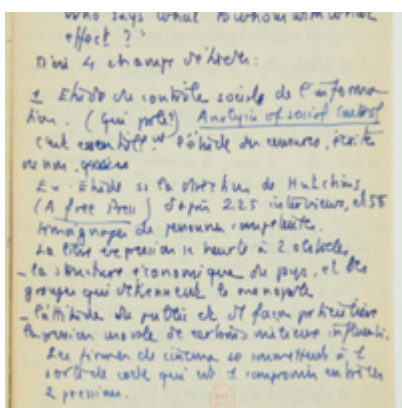 who says what to whom with what
effect ?
D'où 4 champs d'étude :
1 Etude du contrôle sociale de l'informa
tion. (Qui parle) Analysis of social Control
c'est essentiell^nt l'étude des censures, écrite
ou non.
Ex. Etude si la direction de Hutchins
(A free Press) d'après 225 interviews, et 58
témoignages de personnes compétentes.
La libre expression se heurte à 2 obstacles,
- la structure économique du pays, et les
groupes qui détiennent le monopole
- l'attitude du public et de façon particulière
la pression morale de certains milieux influents.
Les firmes de cinéma se soumettent à 1
sorte de code qui est 1 compromis entre les
2 pressions.